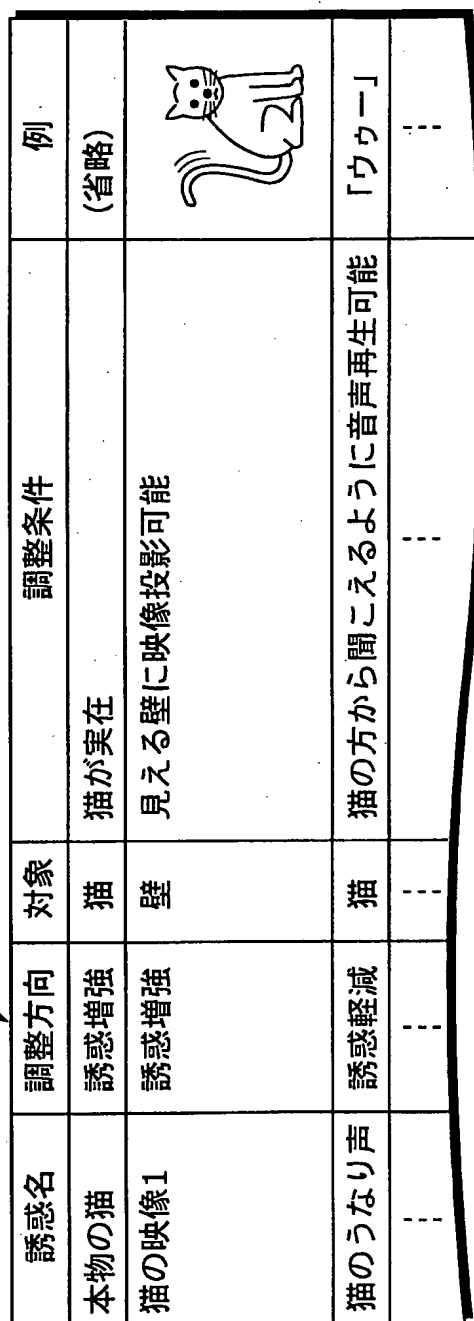 誘惑名 調整方向 対象 調整条件 例
本物の猫 誘惑増強 猫 猫が実在 (省略)
猫の映像1 誘惑増強 壁 見える壁に映像投影可能
猫のうなり声 誘惑軽減 猫 猫の方から聞こえるように音声再生可能 「ウゥー」
--- --- --- --- ---